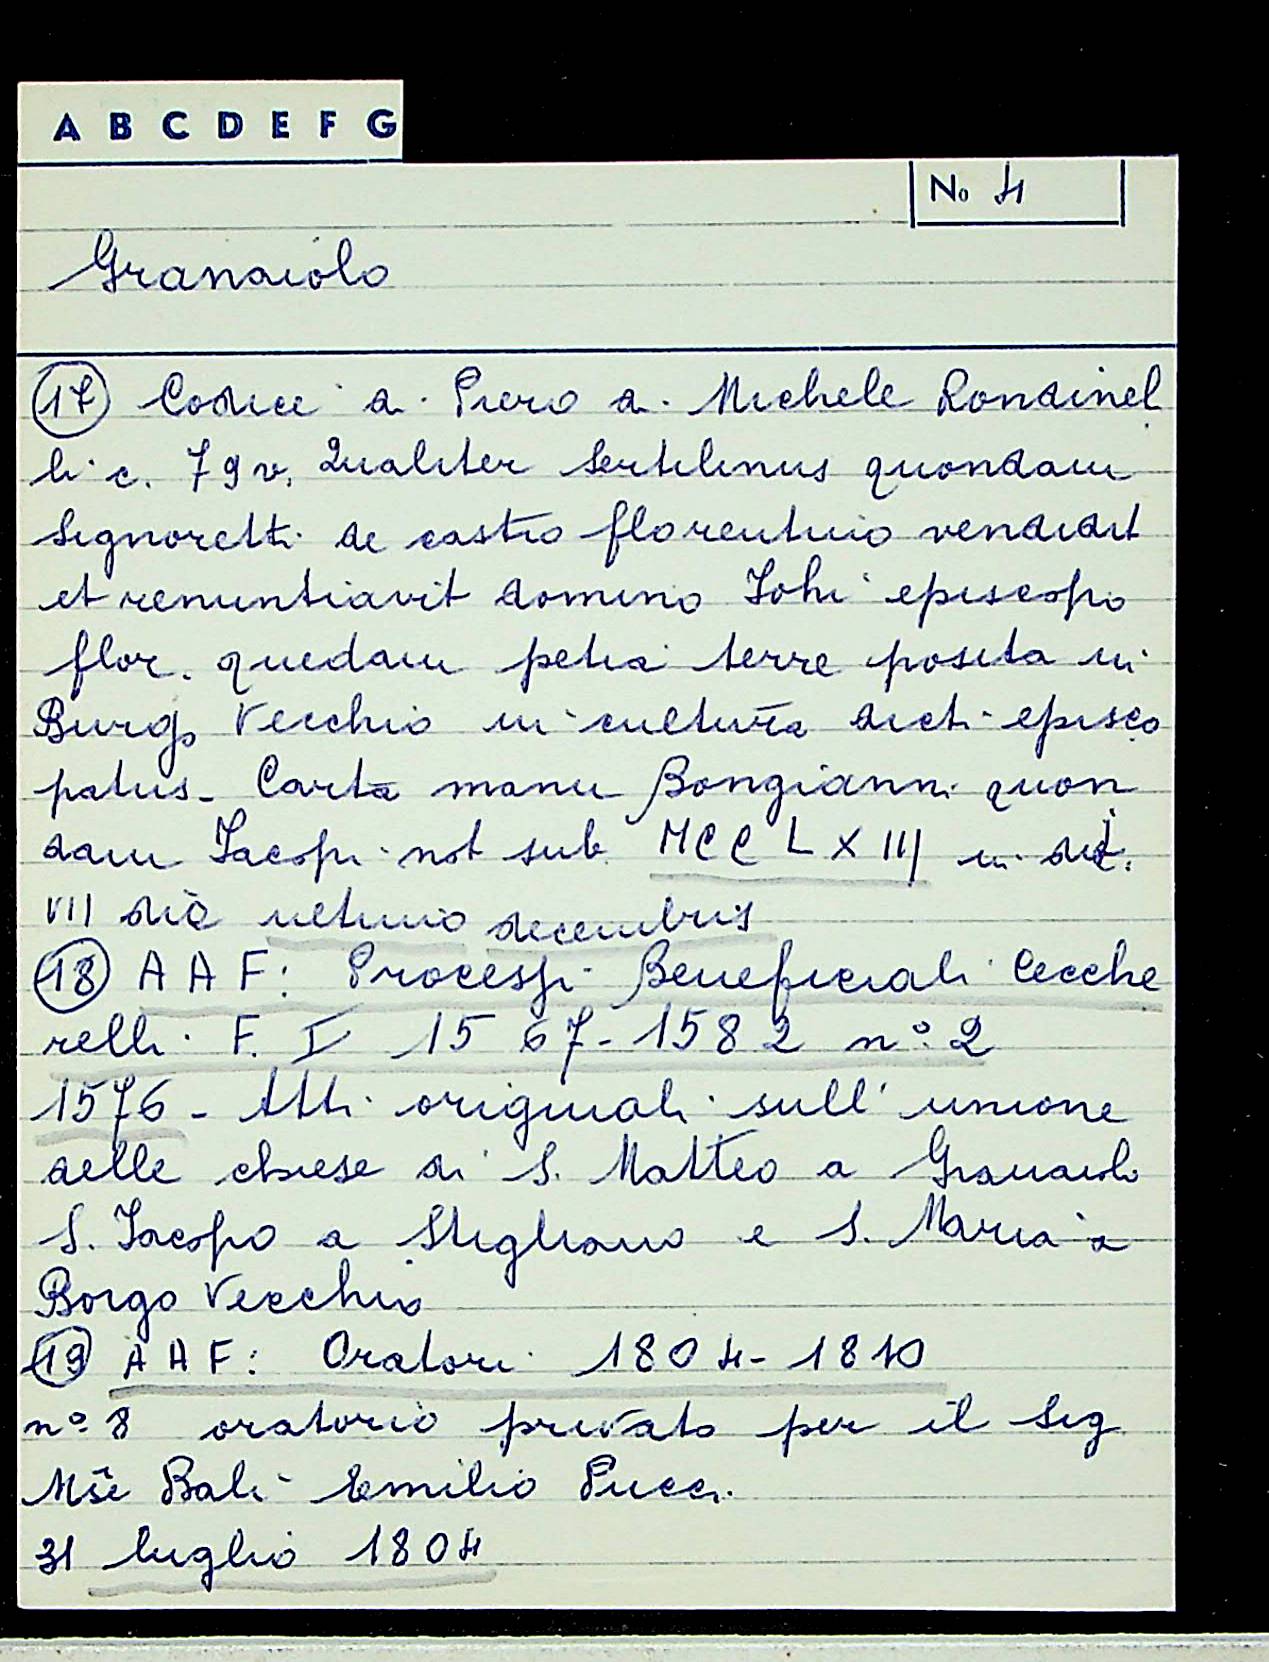 A B C D E F G
No 4
Granaiolo
(17) Codice di Piero di Michele Rondinel
li c. 79 v. Qualiter Sertilinus quondam
Signoretti de castro florentino vendidit
et renuntiavit domino Iohi episcopo
flor. quedam petia terre posita in
Burgo Vecchio in cultura dicti episco
patus - Carta manu Bongianni quon
dam Iacopi not sub MCCLXIII in dict.
VII die ultimo decembris
(18) A A F: Processi Beneficiali Cecche
relli F. I 1567-1582 n° 2
1576 - Atti originali sull'unione
delle chiese di S. Matteo a Granaiolo
S. Iacopo a Stigliano e S. Maria a
Borgo Vecchio
(19) A A F: Oratori 1804-1810
n° 8 oratorio privato per il Sig
Mse Balì Emilio Pucci.
31 luglio 1804